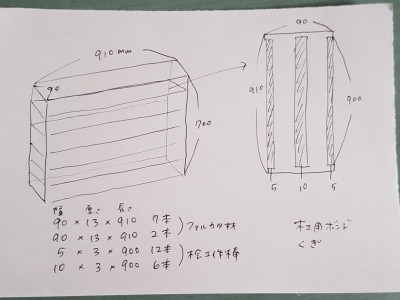 910mm
90
700
90
910
900
5 10 5
幅 厚い 長い
90 × 13 × 910 7本
90 × 13 × 910 2本
ファルカタ材
5 × 3 × 900 12本
10 × 3 × 900 6本
桧工作棒
木工用ボンド
くぎ